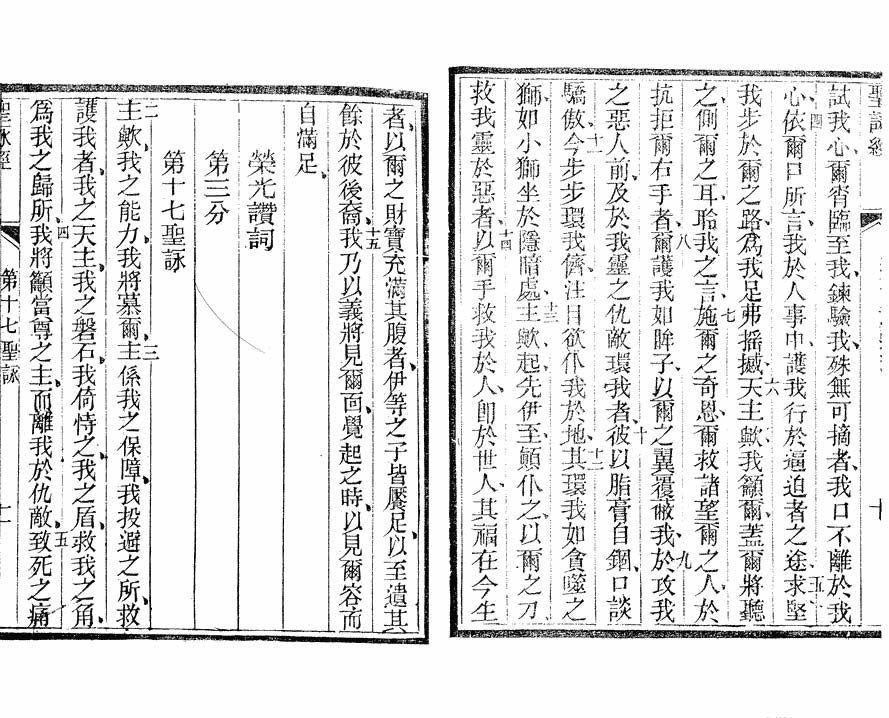 聖詠經
試我心爾宵臨至我鍊驗我殊無可摘者我口不離於我
四
心依爾口所言我於人事中護我行於逼迫者之途求堅
五
我步於爾之路為我足弗搖撼天主歟我籲爾蓋爾將聽
六
之側爾之耳聆我之言施爾之奇恩爾救諸望爾之人於
七
抗拒爾右手者爾護我如眸子以爾之翼覆蔽我於攻我
八 九
之惡人前及於我靈之仇敵環我者彼以脂膏自錮口談
十
驕傲今步步環我儕注目欲仆我於地其環我如貪噬之
十一 十二
獅如小獅坐於隱暗處主歟起先伊至顛仆之以爾之刀
十三
救我靈於惡者以爾手救我於人即於世人其福在今生
十四
者以爾之財寶充滿其腹者伊等之子皆饜足以至遺其
餘於彼後裔我乃以義將見爾面覺起之時以見爾容而
十五
自滿足
榮光讚詞
第三分
第十七聖詠
二
主歟我之能力我將慕爾主係我之保障我投避之所救
三
護我者我之天主我之磐石我倚恃之我之盾救我之角
為我之歸所我將籲當尊之主而離我於仇敵致死之痛
四 五
聖詠經 第十七聖詠 十一